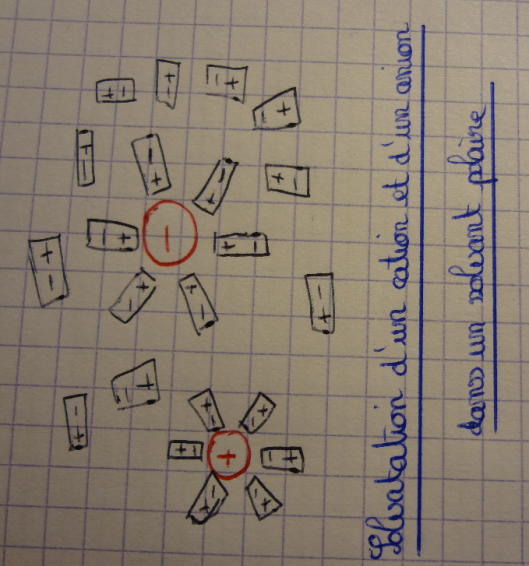 Solvatation d'un cation et d'un anion
dans un solvant plaire